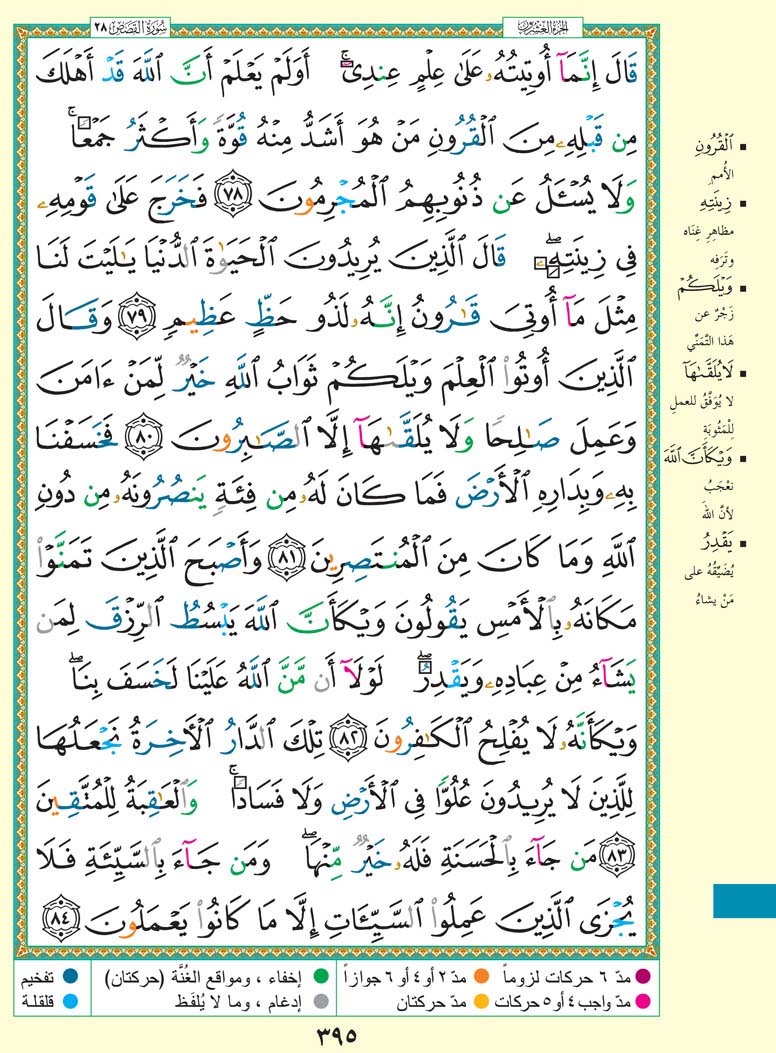 سُورَةُ القَصَصِ ٢٨
الجُزءُ العِشْرُونَ
قَالَ إِنَّمَآ أُوتِيتُهُۥ عَلَىٰ عِلْمٍ عِندِىٓ ۚ أَوَلَمْ يَعْلَمْ أَنَّ ٱللَّهَ قَدْ أَهْلَكَ
مِن قَبْلِهِۦ مِنَ ٱلْقُرُونِ مَنْ هُوَ أَشَدُّ مِنْهُ قُوَّةً وَأَكْثَرُ جَمْعًا ۚ
وَلَا يُسْـَٔلُ عَن ذُنُوبِهِمُ ٱلْمُجْرِمُونَ ﴿٧٨﴾ فَخَرَجَ عَلَىٰ قَوْمِهِۦ
فِى زِينَتِهِۦ ۖ قَالَ ٱلَّذِينَ يُرِيدُونَ ٱلْحَيَوٰةَ ٱلدُّنْيَا يَـٰلَيْتَ لَنَا
مِثْلَ مَآ أُوتِىَ قَـٰرُونُ إِنَّهُۥ لَذُو حَظٍّ عَظِيمٍ ﴿٧٩﴾ وَقَالَ
ٱلَّذِينَ أُوتُوا۟ ٱلْعِلْمَ وَيْلَكُمْ ثَوَابُ ٱللَّهِ خَيْرٌ لِّمَنْ ءَامَنَ
وَعَمِلَ صَـٰلِحًا وَلَا يُلَقَّىٰهَآ إِلَّا ٱلصَّـٰبِرُونَ ﴿٨٠﴾ فَخَسَفْنَا
بِهِۦ وَبِدَارِهِ ٱلْأَرْضَ فَمَا كَانَ لَهُۥ مِن فِئَةٍ يَنصُرُونَهُۥ مِن دُونِ
ٱللَّهِ وَمَا كَانَ مِنَ ٱلْمُنتَصِرِينَ ﴿٨١﴾ وَأَصْبَحَ ٱلَّذِينَ تَمَنَّوْا۟
مَكَانَهُۥ بِٱلْأَمْسِ يَقُولُونَ وَيْكَأَنَّ ٱللَّهَ يَبْسُطُ ٱلرِّزْقَ لِمَن
يَشَآءُ مِنْ عِبَادِهِۦ وَيَقْدِرُ ۖ لَوْلَآ أَن مَّنَّ ٱللَّهُ عَلَيْنَا لَخَسَفَ بِنَا ۖ
وَيْكَأَنَّهُۥ لَا يُفْلِحُ ٱلْكَـٰفِرُونَ ﴿٨٢﴾ تِلْكَ ٱلدَّارُ ٱلْـَٔاخِرَةُ نَجْعَلُهَا
لِلَّذِينَ لَا يُرِيدُونَ عُلُوًّا فِى ٱلْأَرْضِ وَلَا فَسَادًا ۚ وَٱلْعَـٰقِبَةُ لِلْمُتَّقِينَ
﴿٨٣﴾ مَن جَآءَ بِٱلْحَسَنَةِ فَلَهُۥ خَيْرٌ مِّنْهَا ۖ وَمَن جَآءَ بِٱلسَّيِّئَةِ فَلَا
يُجْزَى ٱلَّذِينَ عَمِلُوا۟ ٱلسَّيِّـَٔاتِ إِلَّا مَا كَانُوا۟ يَعْمَلُونَ ﴿٨٤﴾
▪ ٱلْقُرُونِ
الأُمم
▪ زِينَتِهِ
مظاهرِ غِنَاه
وتَرَفِه
▪ وَيْلَكُمْ
زَجْرٌ عن
هَذا التَّمَنِّي
▪ لَا يُلَقَّىٰهَآ
لا يُوَفَّقُ للعملِ
لِلْمَثُوبَةِ
▪ وَيْكَأَنَّ ٱللَّهَ
نَعْجَبُ
لأنَّ اللهَ
▪ يَقْدِرُ
يُضَيِّقُهُ على
مَنْ يشاءُ
مدّ ٦ حركات لزوماً
مدّ ٢ أو ٤ أو ٦ جوازاً
إخفاء ، ومواقع الغُنَّة (حركتان)
تفخيم
مدّ واجب ٤ أو ٥ حركات
مدّ حركتان
إدغام ، وما لا يُلفَظ
قلقلة
٣٩٥